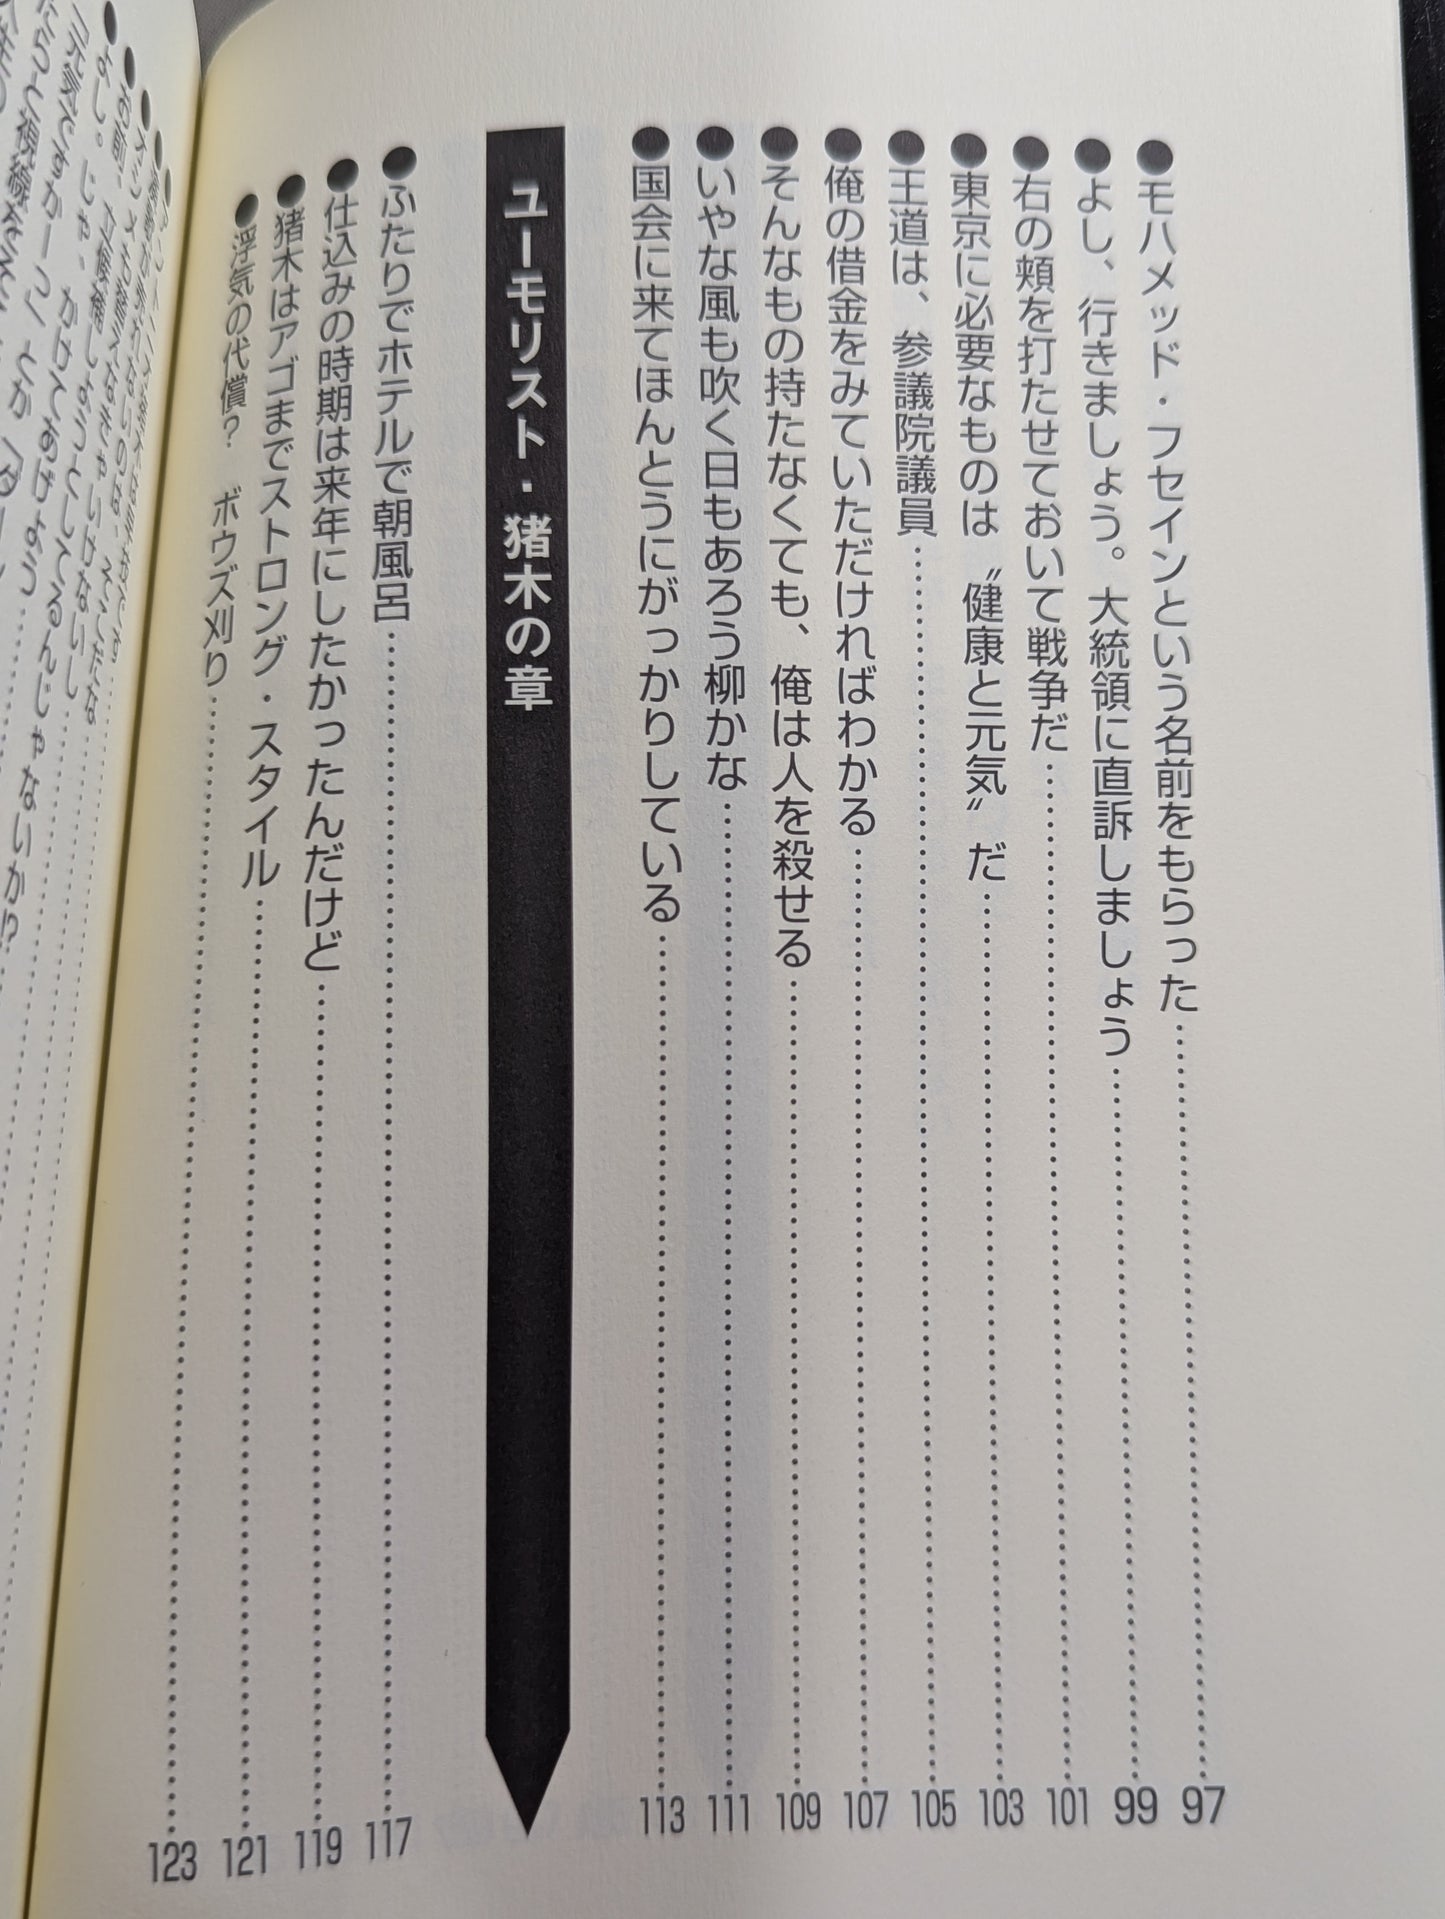 ●モハメッド・フセインという名前をもらった……97
●よし、行きましょう。大統領に直訴しましょう……99
●右の頬を打たせておいて戦争だ……101
●東京に必要なものは〝健康と元気〟だ……103
●王道は、参議院議員……105
●俺の借金をみていただければわかる……107
●そんなもの持たなくても、俺は人を殺せる……109
●いやな風も吹く日もあろう柳かな……111
●国会に来てほんとうにがっかりしている……113
ユーモリスト・猪木の章
●ふたりでホテルで朝風呂……117
●仕込みの時期は来年にしたかったんだけど……119
●猪木はアゴまでストロング・スタイル……121
●浮気の代償？　ボウズ刈り……123